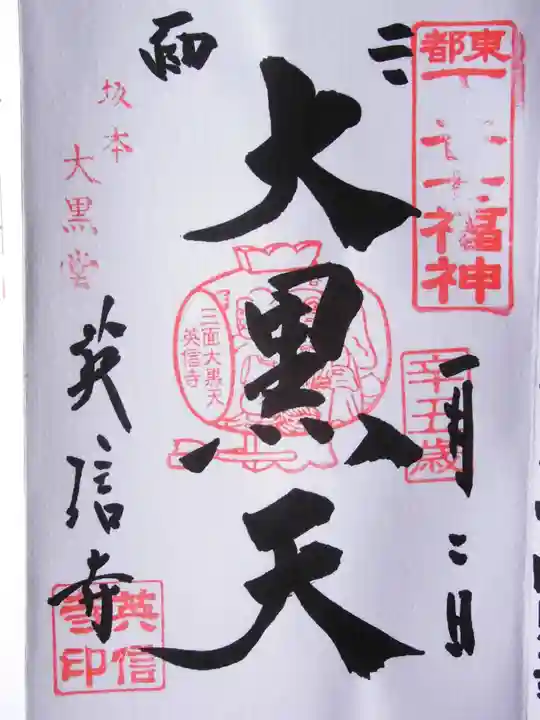 東都
下谷
七福神
辛丑歳
一月二日
三面
大黒天
三面大黒天
英信寺
坂本
大黒堂
英信寺
英信
寺印